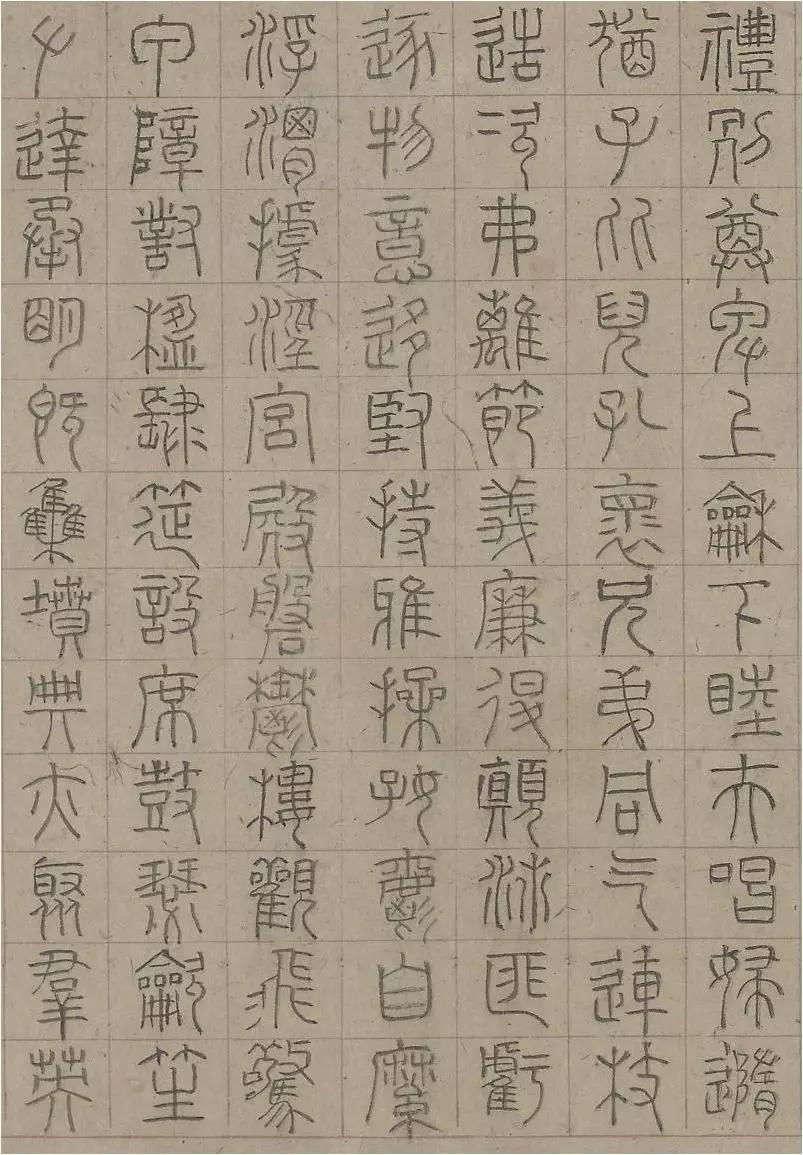 禮別尊卑上龢下睦夫唱婦隨
猶子比兒孔懷兄弟同气連枝
造次弗離節義廉退顛沛匪虧
逐物意迻堅持雅操好爵自縻
浮渭據涇宮殿磐鬱樓觀飛驚
甲障對楹肆筵設席鼓瑟龡笙
左達承明既集墳典亦聚羣英